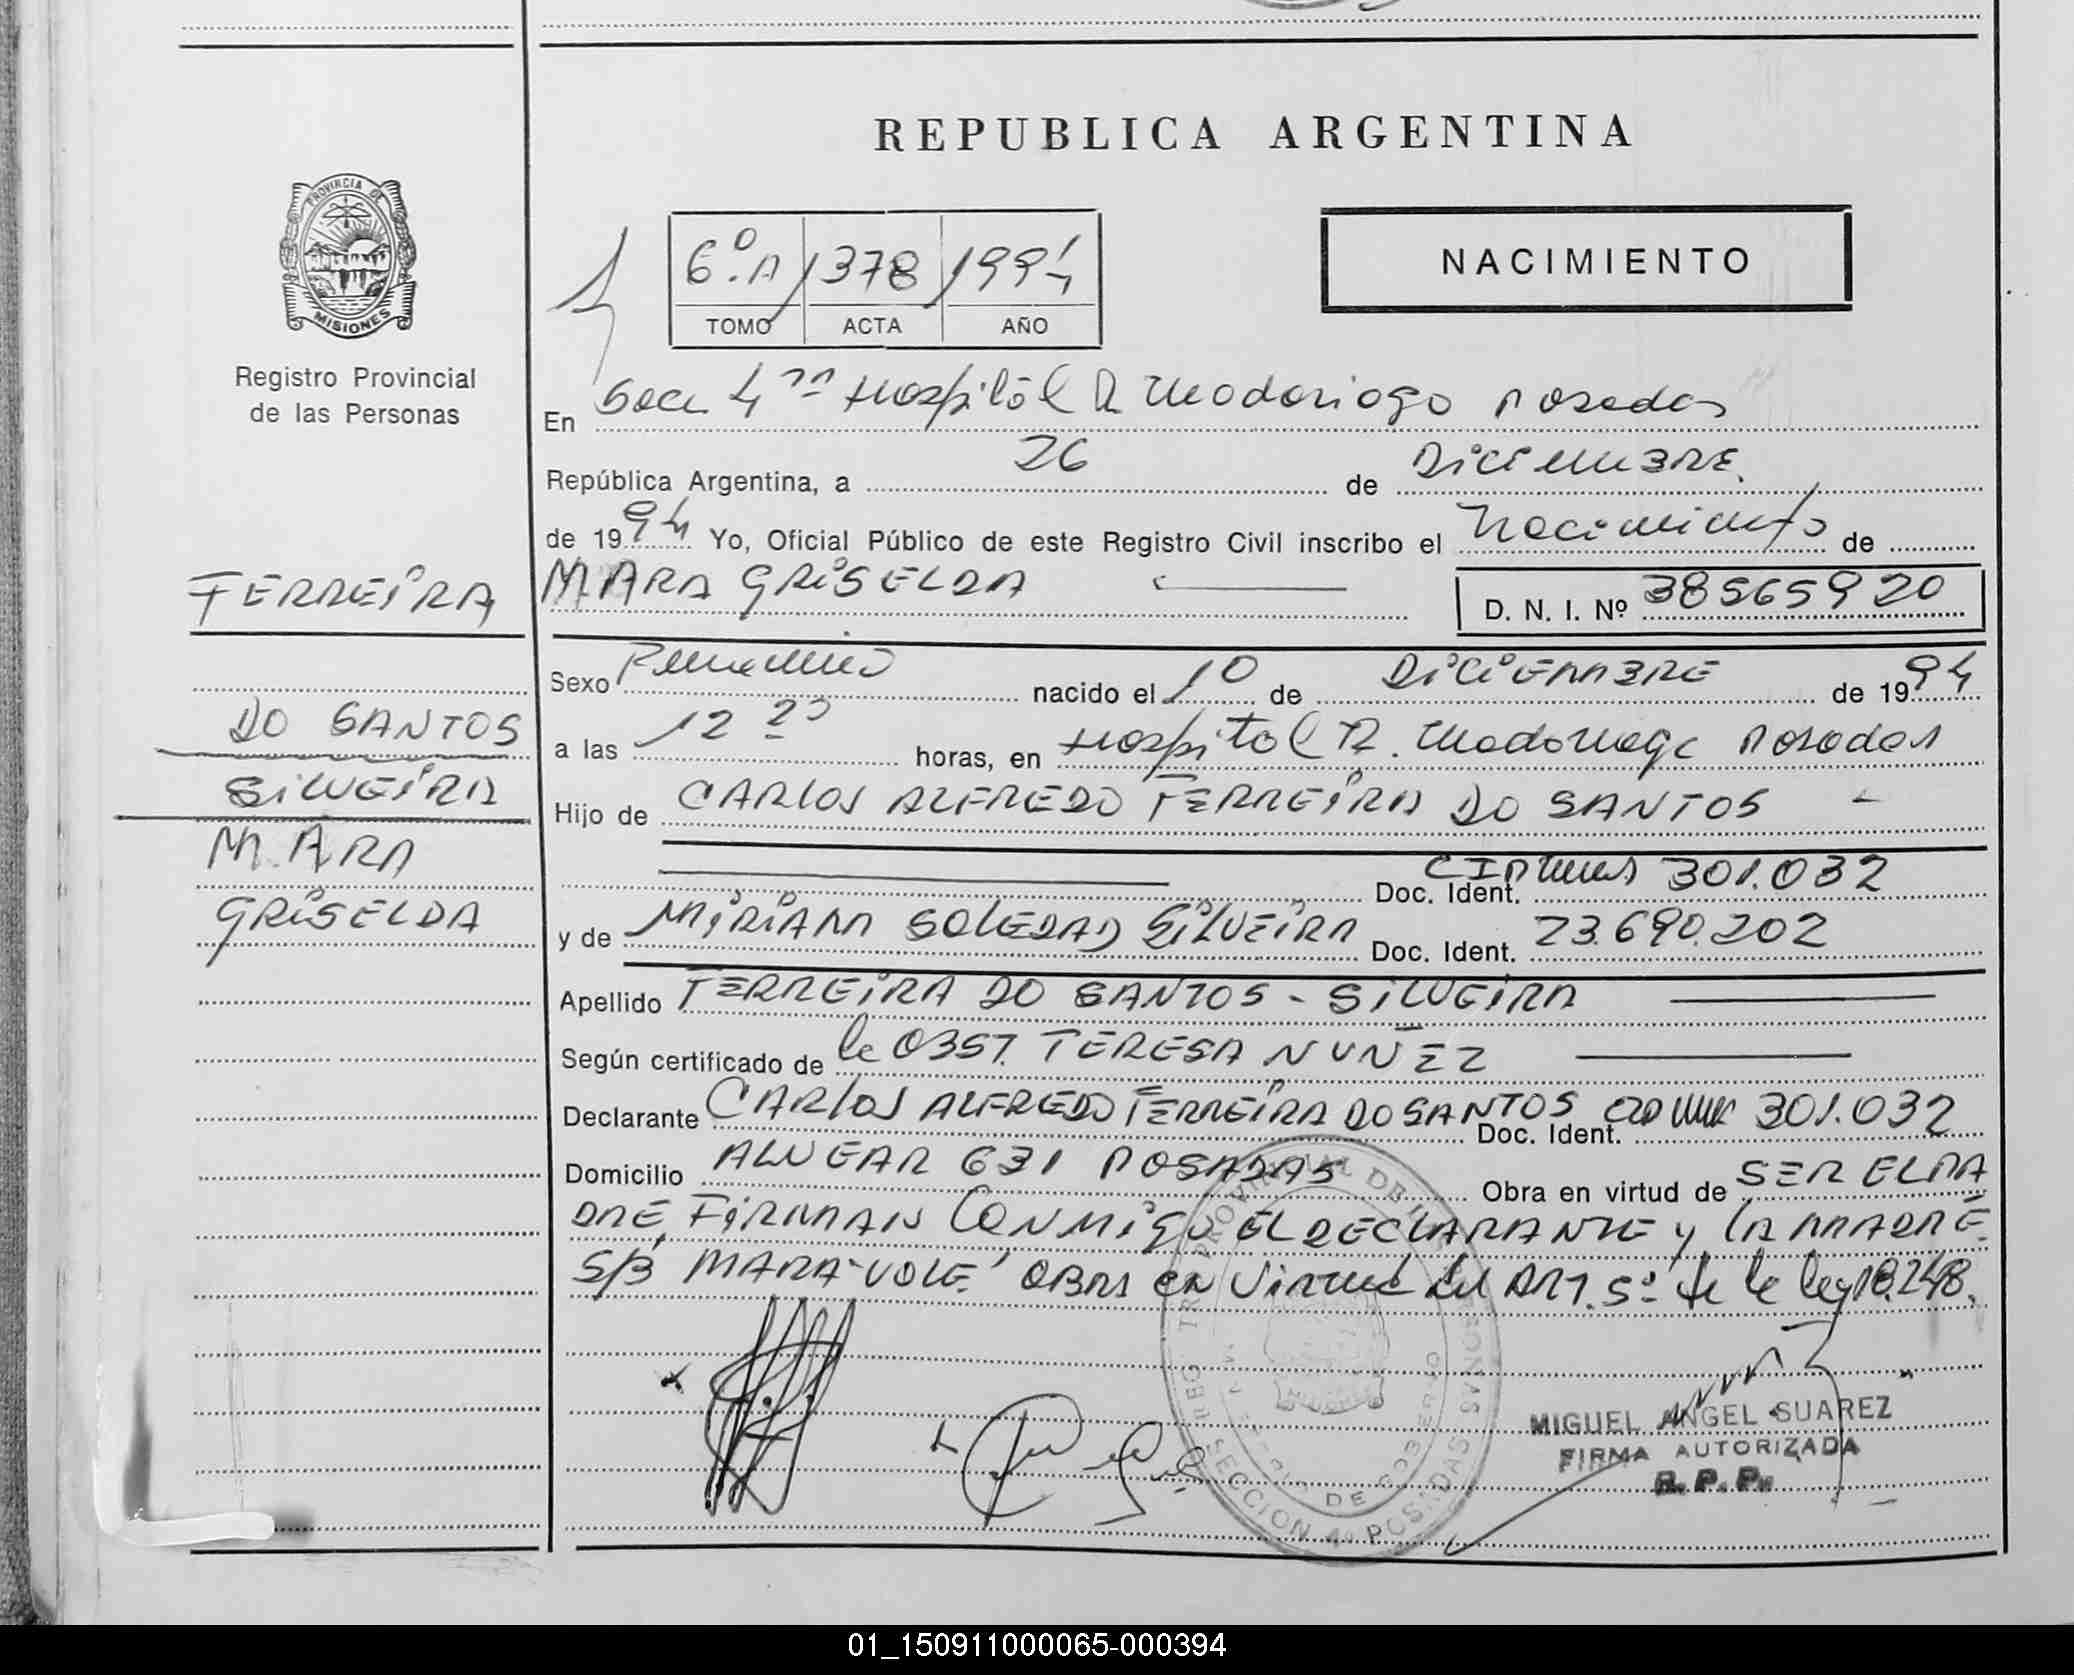 REPUBLICA ARGENTINA
PROVINCIA DE
MISIONES
Registro Provincial
de las Personas
6º.A / 378 / 1994
TOMO ACTA AÑO
NACIMIENTO
En Secc 4ta Hospital R Madariaga Posadas
República Argentina, a 26 de DICIEMBRE.
de 1994 Yo, Oficial Público de este Registro Civil inscribo el Nacimiento de
FERREIRA
DO SANTOS
SILVEIRA
MARA
GRISELDA
MARA GRISELDA
D. N. I. Nº 38565920
Sexo Femenino nacido el 10 de DICIEMBRE de 1994
a las 12 horas, en Hospital R. Madariaga Posadas
Hijo de CARLOS ALFREDO FERREIRA DO SANTOS -
Doc. Ident. 301.032
y de MIRIAM SOLEDAD SILVEIRA Doc. Ident. 23.690.202
Apellido FERREIRA DO SANTOS - SILVEIRA
Según certificado de la OBST. TERESA NUÑEZ
Declarante CARLOS ALFREDO FERREIRA DO SANTOS Doc. Ident. 301.032
Domicilio ALVEAR 631 POSADAS Obra en virtud de SER EL PA
DRE, FIRMAN CONMIGO EL DECLARANTE y LA MADRE.
S/B MARA "VALE" OBRA en virtud del ART. 5º de la ley 18.248.
MIGUEL ANGEL SUAREZ
FIRMA AUTORIZADA
R. P. P.
SECCION 4º POSADAS
01_150911000065-000394